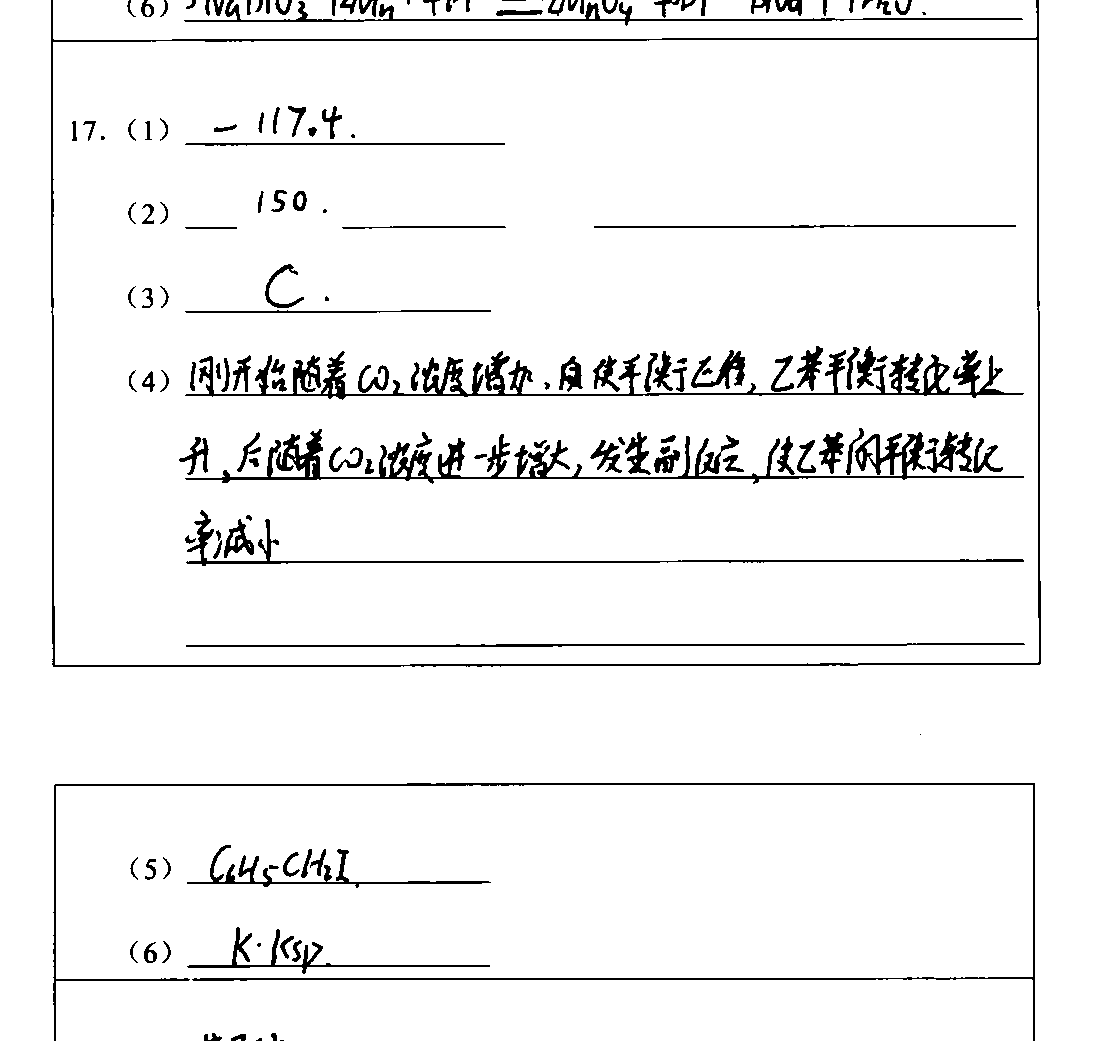 (6) 5NaBiO₃
17. (1) -117.4.
(2) 150.
(3) C.
(4) 刚开始随着CO₂浓度增加,使平衡正移,乙苯平衡转化率上
升,后随着CO₂浓度进一步增大,发生副反应,使乙苯的平衡转化
率减小
(5) C₆H₅CH₂I.
(6) K·Ksp.